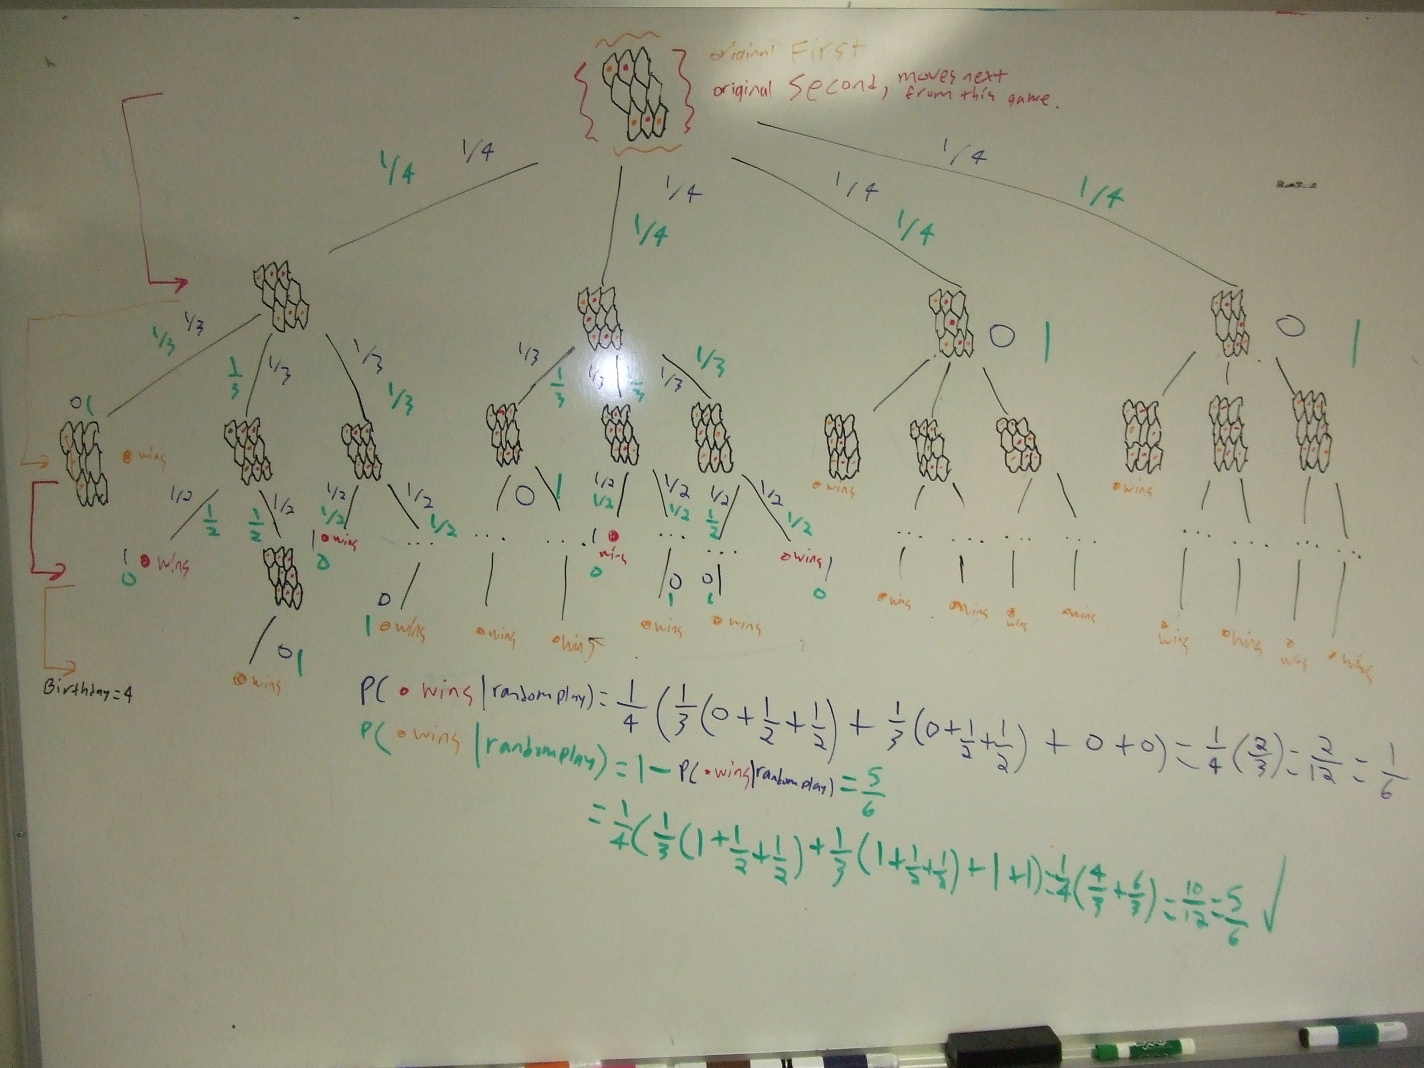 original First
original Second, moves next
from this game.
1/4 1/4 1/4 1/4 1/4 1/4 1/4 1/4
0 1 0 1
1/3 1/3 1/3 1/3 1/3 1/3
1/3 1/3 1/3 1/3 1/3 1/3
0 1
wins
1/2 1/2 1/2 1/2 1/2 1/2 0 1 1/2 1/2 1/2 1/2
1/2 1/2 1/2 1/2
wins
wins
1 wins 0
1 wins 0
... ... ... ... ... ... ... ... ... ...
1 wins 0
wins 1 0
0 1 0 1
0 1 wins
wins
wins
wins
wins
wins
wins
wins
wins
wins
wins
wins
wins
0 1
wins
Birthday=4
P(• wins | random play) = 1/4 (1/3 (0 + 1/2 + 1/2) + 1/3 (0 + 1/2 + 1/2) + 0 + 0) = 1/4 (2/3) = 2/12 = 1/6
P(• wins | random play) = 1 - P(• wins | random play) = 5/6
= 1/4 (1/3 (1 + 1/2 + 1/2) + 1/3 (1 + 1/2 + 1/2) + 1 + 1) = 1/4 (4/3 + 6/3) = 10/12 = 5/6 √